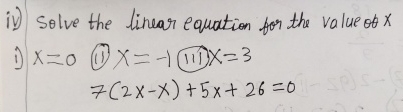 iv) Solve the linear equation for the value of X
i) X=0 (ii) X=-1 (iii) X=3
7(2x-x)+5x+26=0